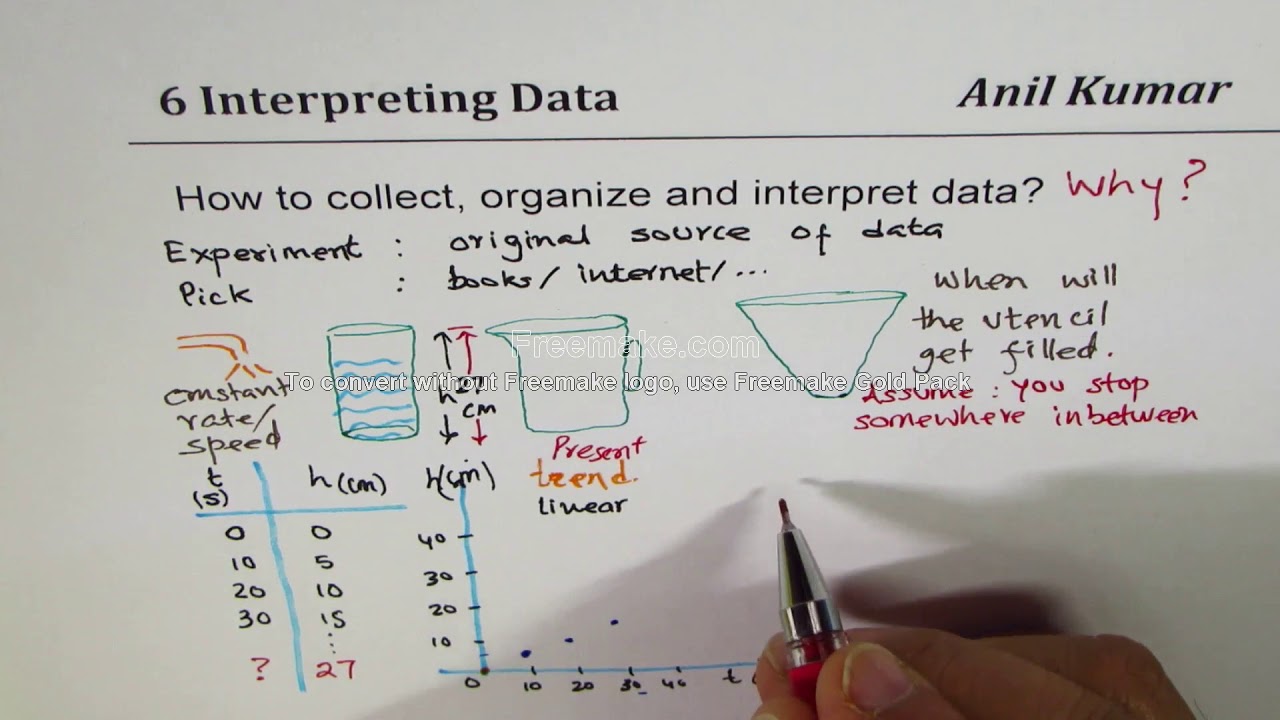 6 Interpreting Data
Anil Kumar
How to collect, organize and interpret data? Why?
Experiment : original source of data
Pick : books/ internet/...
When will
the utencil
get filled.
Assume : You stop
somewhere inbetween
Freemake.com
To convert without Freemake logo, use Freemake Gold Pack
constant
rate/
speed
h
cm
Present
trend.
linear
t (s) h (cm)
0 0
10 5
20 10
30 15
? 27
h(cm)
40
30
20
10
0 10 20 30 40 t